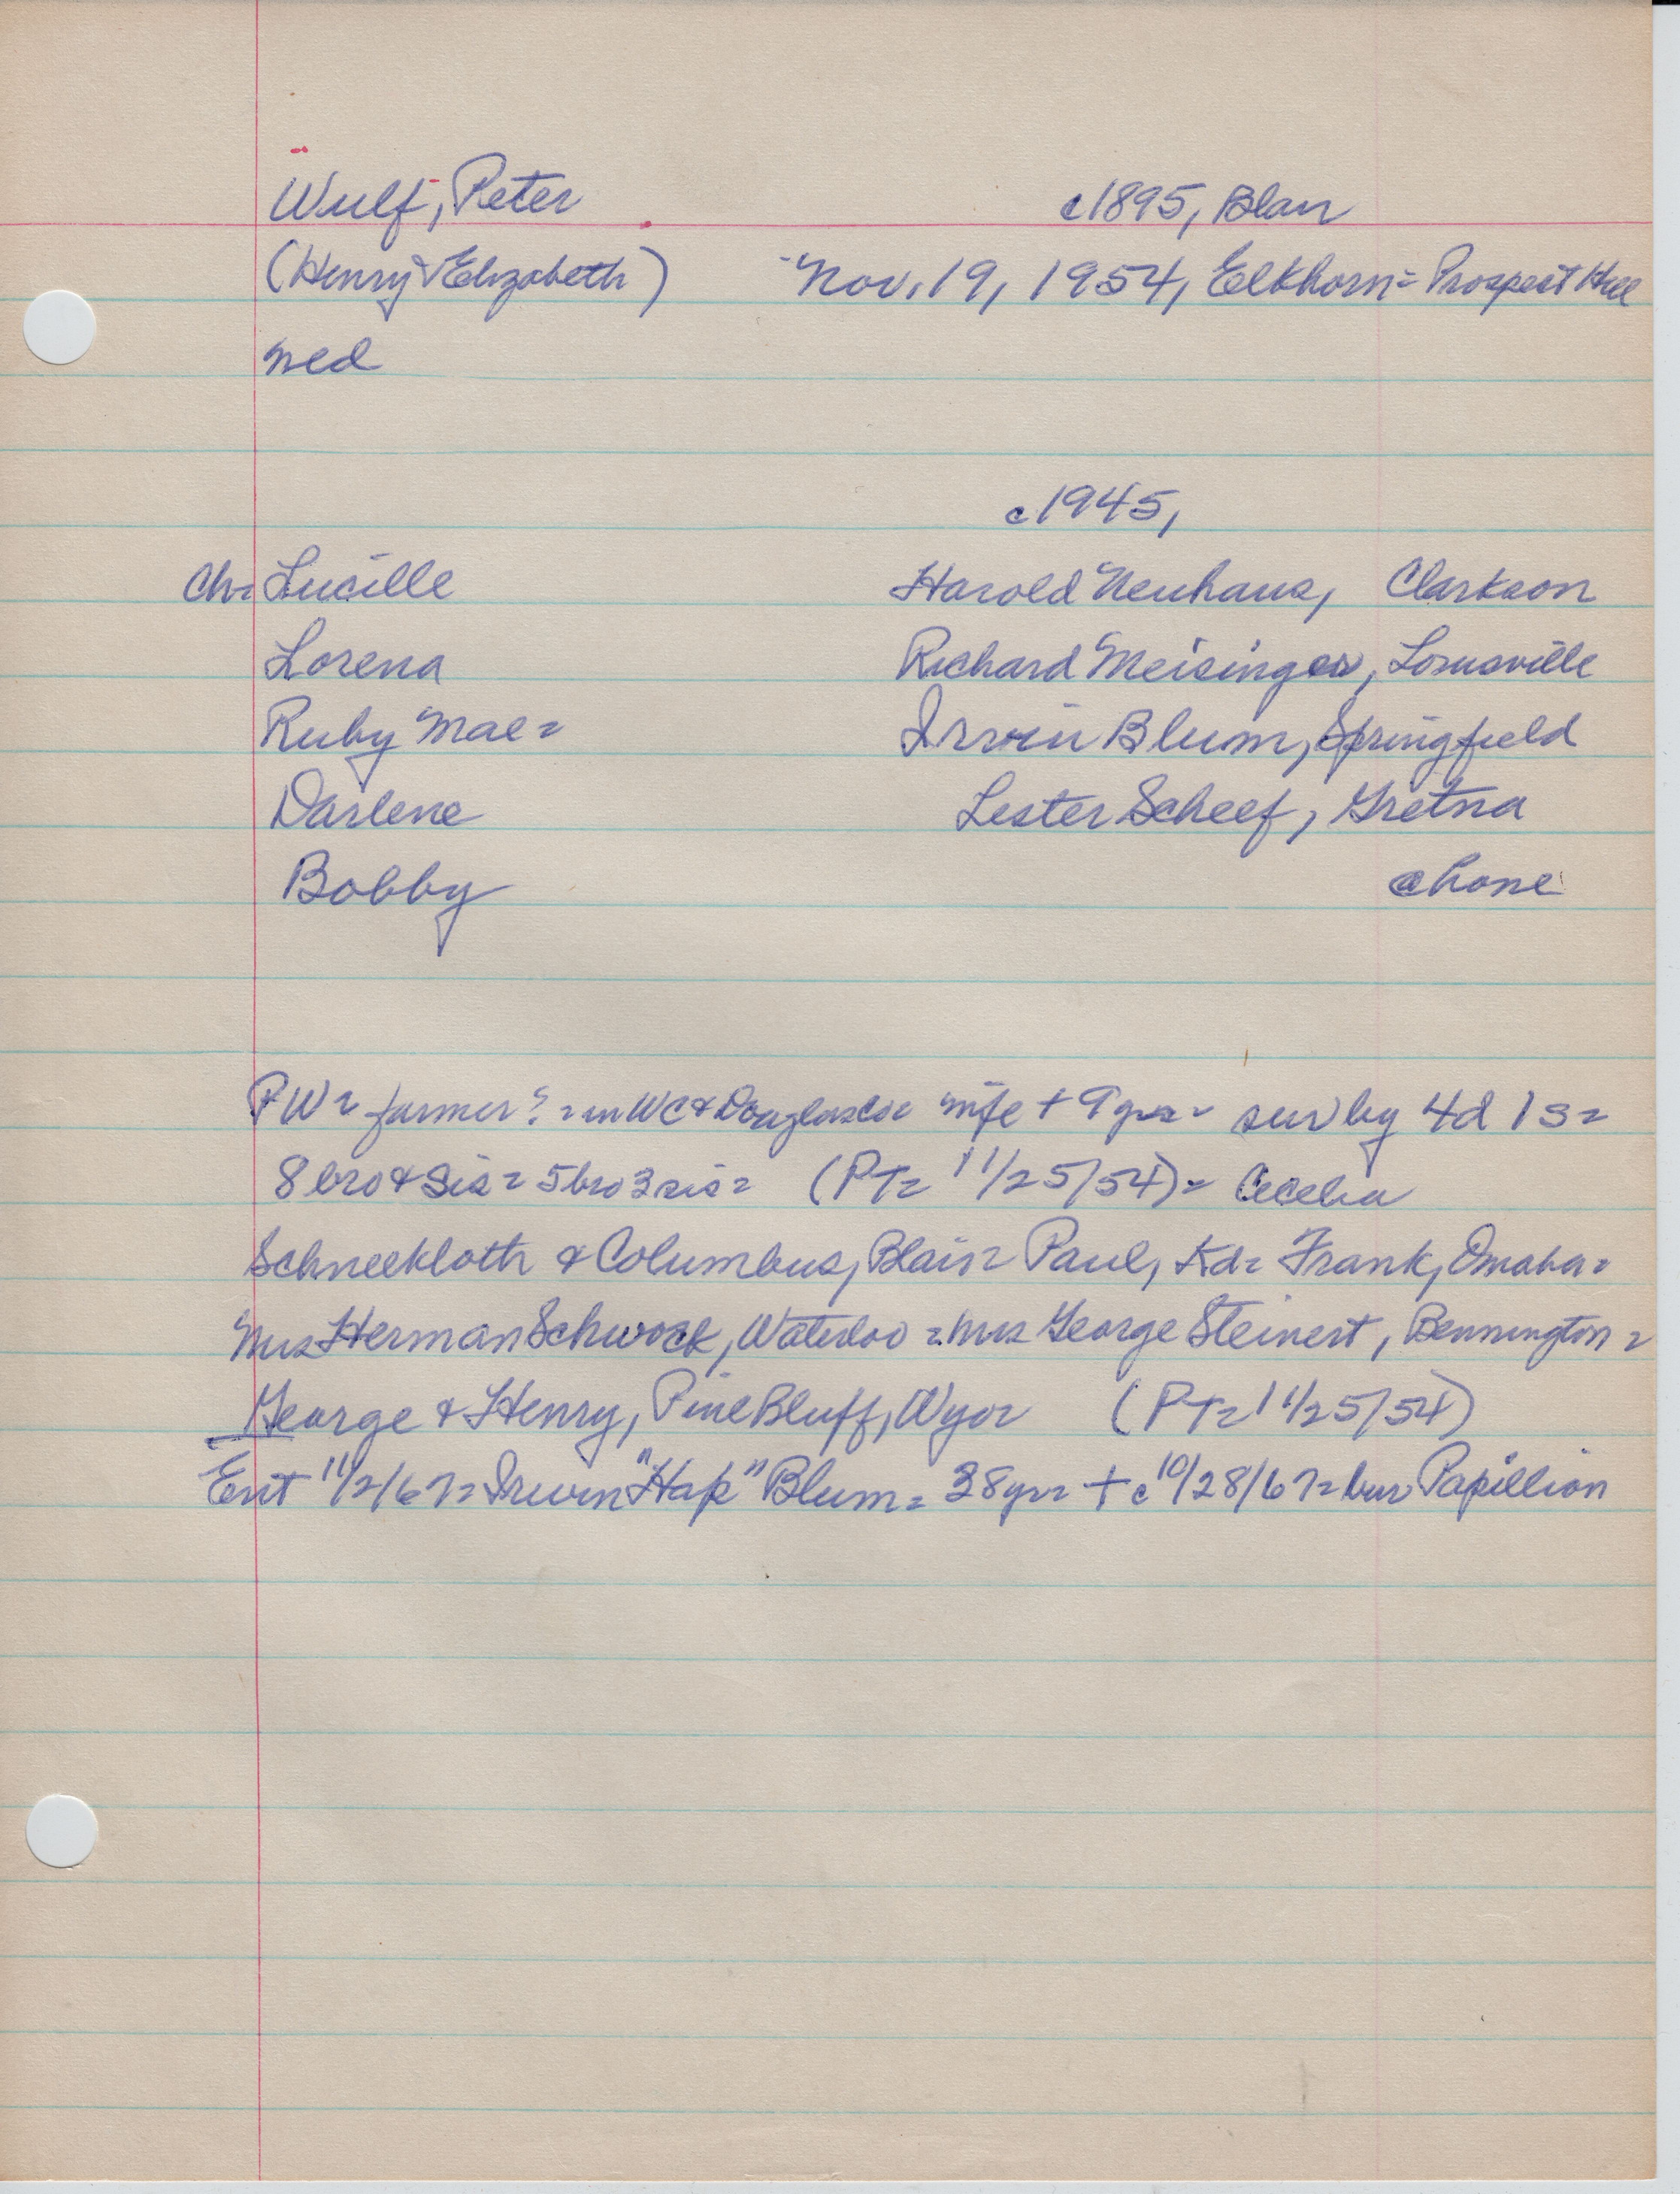 Wulf, Peter c1895, Blair
(Henry & Elizabeth) Nov. 19, 1954, Elkhorn = Prospect Hill
ned
c1945,
Ch = Lucille Harold Neuhaus, Clarkson
Lorena Richard Meisinger, Louisville
Ruby Mae = Irwin Blum, Springfield
Darlene Lester Scheef, Gretna
Bobby @ home
PW = farmer? = in WC & Douglas Co = wife + 9 yrs = sur by 4d 1s =
8 bro & sis = 5 bro 3 sis = (PT = 11/25/54) = Cecelia
Schneekloth & Columbus, Blair = Paul, Kd = Frank, Omaha =
Mrs Herman Schwack, Waterloo = Mrs George Steinert, Bennington =
George & Henry, Pine Bluff, Wyo = (PT = 11/25/54)
Ent 11/2/67 = Irwin "Hap" Blum = 38 yr = + c 10/28/67 = bur Papillion